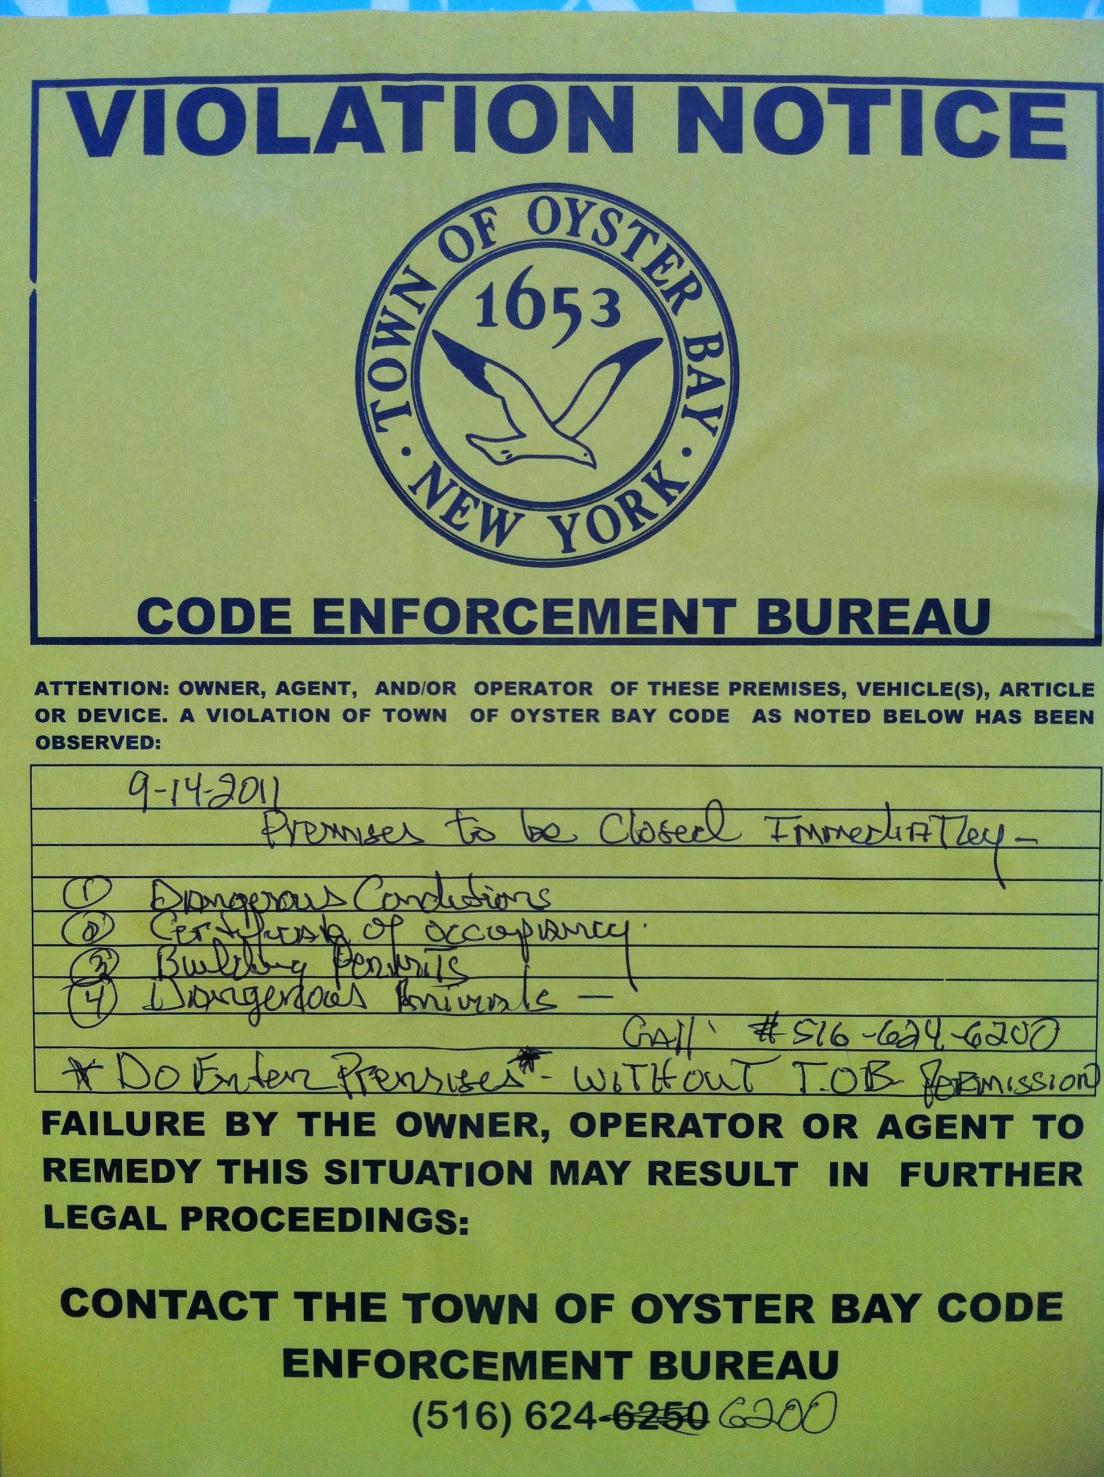 VIOLATION NOTICE
TOWN OF OYSTER BAY
1653
· NEW YORK ·
CODE ENFORCEMENT BUREAU
ATTENTION: OWNER, AGENT, AND/OR OPERATOR OF THESE PREMISES, VEHICLE(S), ARTICLE
OR DEVICE. A VIOLATION OF TOWN OF OYSTER BAY CODE AS NOTED BELOW HAS BEEN
OBSERVED:
9-14-2011
Premises to be Closed ImmediATley-
① Dangerous Conditions
② Certificate of occupancy.
③ Building Permits
④ Dangerous Animals —
CAll # 516-624-6200
* Do Enter Premises* - WITHOUT T.O.B PERMISSION
FAILURE BY THE OWNER, OPERATOR OR AGENT TO
REMEDY THIS SITUATION MAY RESULT IN FURTHER
LEGAL PROCEEDINGS:
CONTACT THE TOWN OF OYSTER BAY CODE
ENFORCEMENT BUREAU
(516) 624-6250 6200